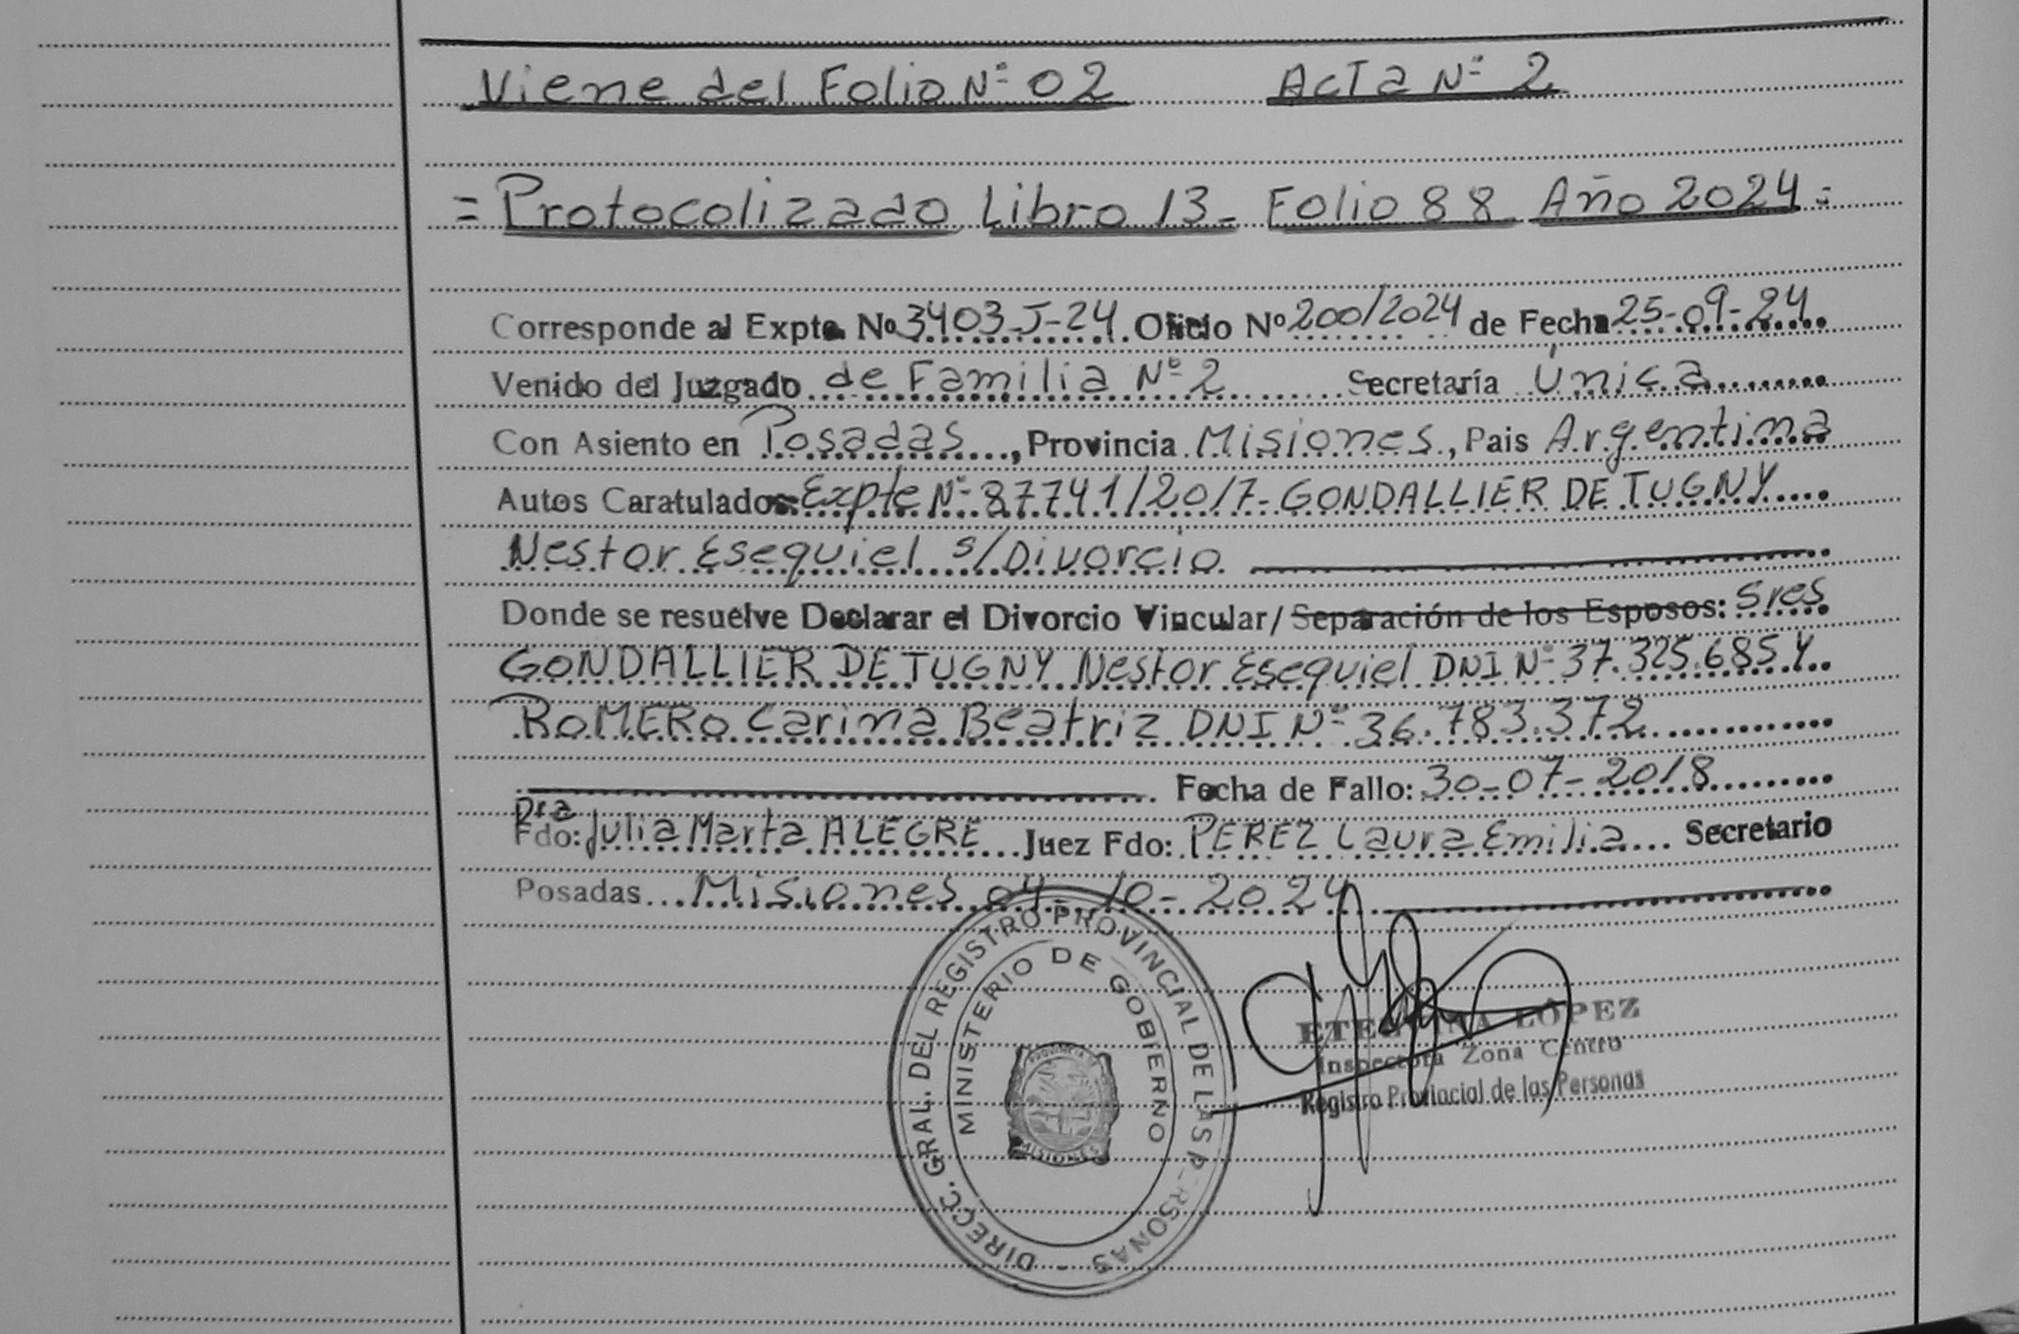 Viene del Folio Nº 02 Acta Nº 2
= Protocolizado Libro 13 - Folio 88 Año 2024 =
Corresponde al Expte. Nº 3403-J-24. Oficio Nº 200/2024 de Fecha 25-09-24
Venido del Juzgado de Familia Nº 2 Secretaría Única
Con Asiento en Posadas, Provincia Misiones, Pais Argentina
Autos Caratulados: Expte Nº 87741/2017- GONDALLIER DE TUGNY
Nestor Esequiel s/Divorcio
Donde se resuelve Declarar el Divorcio Vincular/ Separación de los Esposos: Sres
GONDALLIER DE TUGNY Nestor Esequiel DNI Nº 37.325.685 Y
ROMERO Carina Beatriz DNI Nº 36.783.372
Fecha de Fallo: 30-07-2018
Dra
Fdo: Julia Marta ALEGRE Juez Fdo: PEREZ Laura Emilia Secretario
Posadas Misiones 04-10-2024
DIRECC. GRAL. DEL REGISTRO PROVINCIAL DE LAS PERSONAS -
MINISTERIO DE GOBIERNO
PROVINCIA
MISIONES
LÓPEZ
Inspectora Zona Centro
Registro Provincial de las Personas